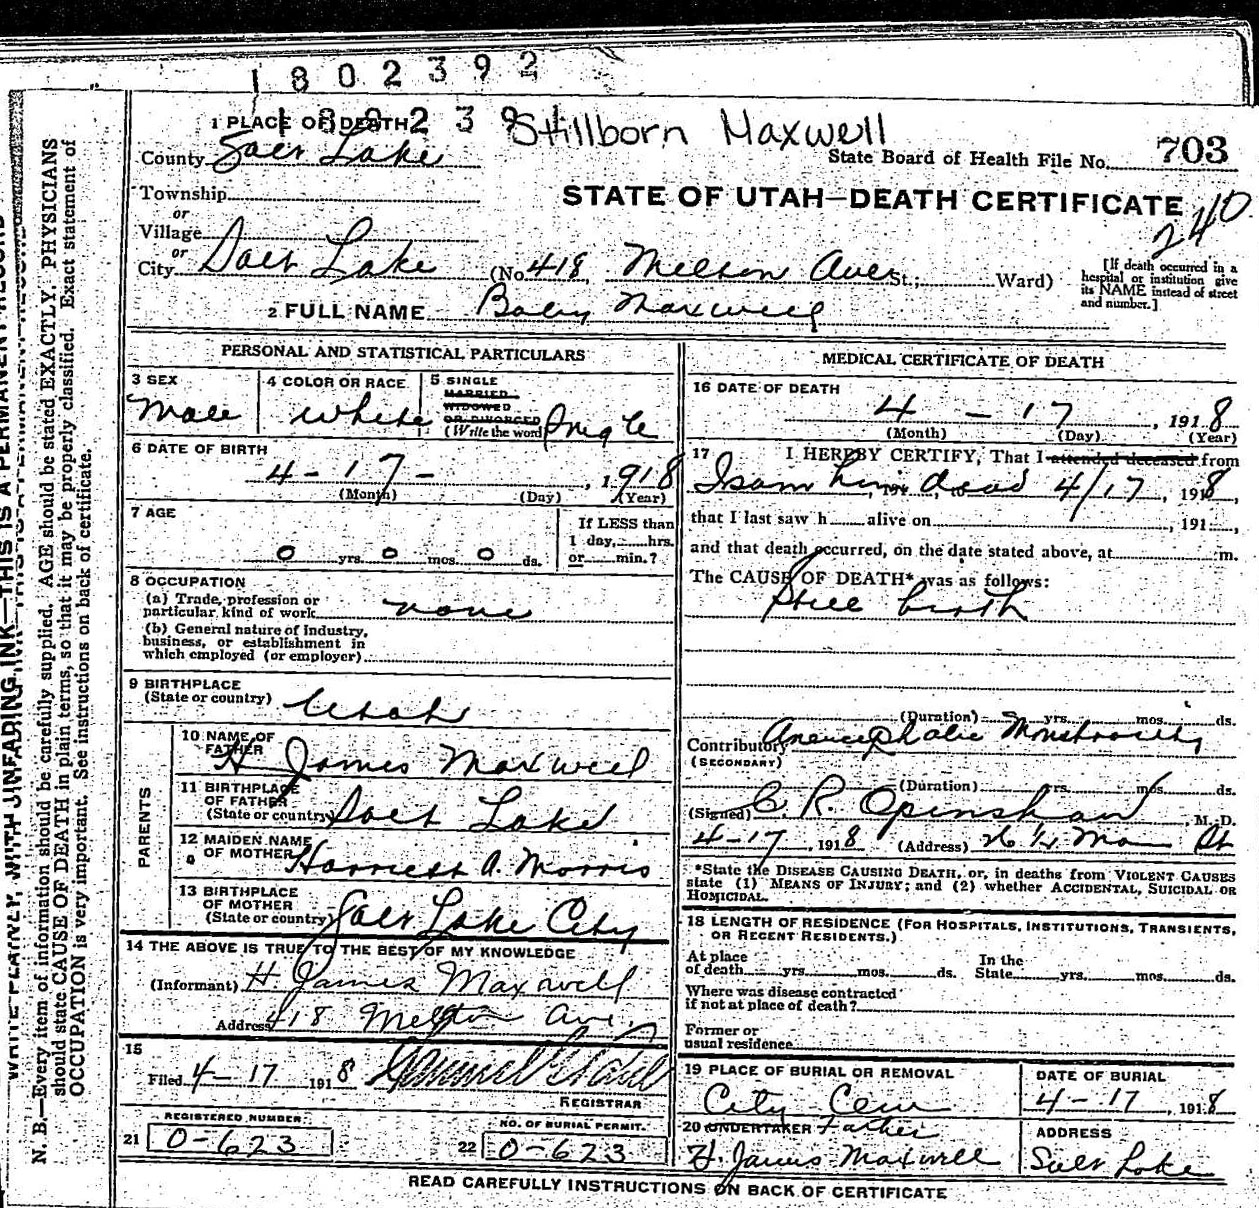 1802392
1 PLACE OF DEATH
Stillborn Maxwell
County Salt Lake
State Board of Health File No. 703
Township
STATE OF UTAH—DEATH CERTIFICATE
240
or
Village
or
City Salt Lake (No. 418, Ave St.; Ward)
[If death occurred in a
hospital or institution give
its NAME instead of street
and number.]
2 FULL NAME Baby Maxwell
PERSONAL AND STATISTICAL PARTICULARS
3 SEX
Male
4 COLOR OR RACE
White
5 SINGLE
MARRIED
WIDOWED
OR DIVORCED
(Write the word) Single
6 DATE OF BIRTH
4-17-, 1918
(Month) (Day) (Year)
7 AGE
If LESS than
1 day, hrs.
0 yrs. 0 mos. 0 ds. or min.?
8 OCCUPATION
(a) Trade, profession or
particular kind of work none
(b) General nature of industry,
business, or establishment in
which employed (or employer)
9 BIRTHPLACE
(State or country) Utah
PARENTS
10 NAME OF
FATHER
H James Maxwell
11 BIRTHPLACE
OF FATHER
(State or country) Salt Lake
12 MAIDEN NAME
OF MOTHER Harriett A. Morris
13 BIRTHPLACE
OF MOTHER
(State or country) Salt Lake City
14 THE ABOVE IS TRUE TO THE BEST OF MY KNOWLEDGE
(Informant) H. James Maxwell
Address 418 Ave.
15
Filed 4-17 1918
REGISTRAR
REGISTERED NUMBER
21 0-623
NO. OF BURIAL PERMIT.
22 0-623
MEDICAL CERTIFICATE OF DEATH
16 DATE OF DEATH
4 - 17, 1918
(Month) (Day) (Year)
17 I HEREBY CERTIFY, That I attended deceased from
I saw him dead 4/17, 1918,
that I last saw h alive on , 191 ,
and that death occurred, on the date stated above, at m.
The CAUSE OF DEATH* was as follows:
Still birth
(Duration) yrs. mos. ds.
Contributory Anencephalic Monstrosity
(SECONDARY)
(Duration) yrs. mos. ds.
(Signed) C. R. Openshaw, M. D.
4-17, 1918 (Address) 26 1/2 Main St
*State the DISEASE CAUSING DEATH, or, in deaths from VIOLENT CAUSES
state (1) MEANS OF INJURY; and (2) whether ACCIDENTAL, SUICIDAL OR
HOMICIDAL.
18 LENGTH OF RESIDENCE (FOR HOSPITALS, INSTITUTIONS, TRANSIENTS,
OR RECENT RESIDENTS.)
At place
of death yrs. mos. ds. In the
State yrs. mos. ds.
Where was disease contracted
if not at place of death?
Former or
usual residence
19 PLACE OF BURIAL OR REMOVAL
City Cem
DATE OF BURIAL
4-17, 1918
20 UNDERTAKER Father
H. James Maxwell
ADDRESS
Salt Lake
READ CAREFULLY INSTRUCTIONS ON BACK OF CERTIFICATE
WRITE PLAINLY, WITH UNFADING INK—THIS IS A PERMANENT RECORD
N. B.—Every item of information should be carefully supplied. AGE should be stated EXACTLY. PHYSICIANS
should state CAUSE OF DEATH in plain terms, so that it may be properly classified. Exact statement of
OCCUPATION is very important. See instructions on back of certificate.